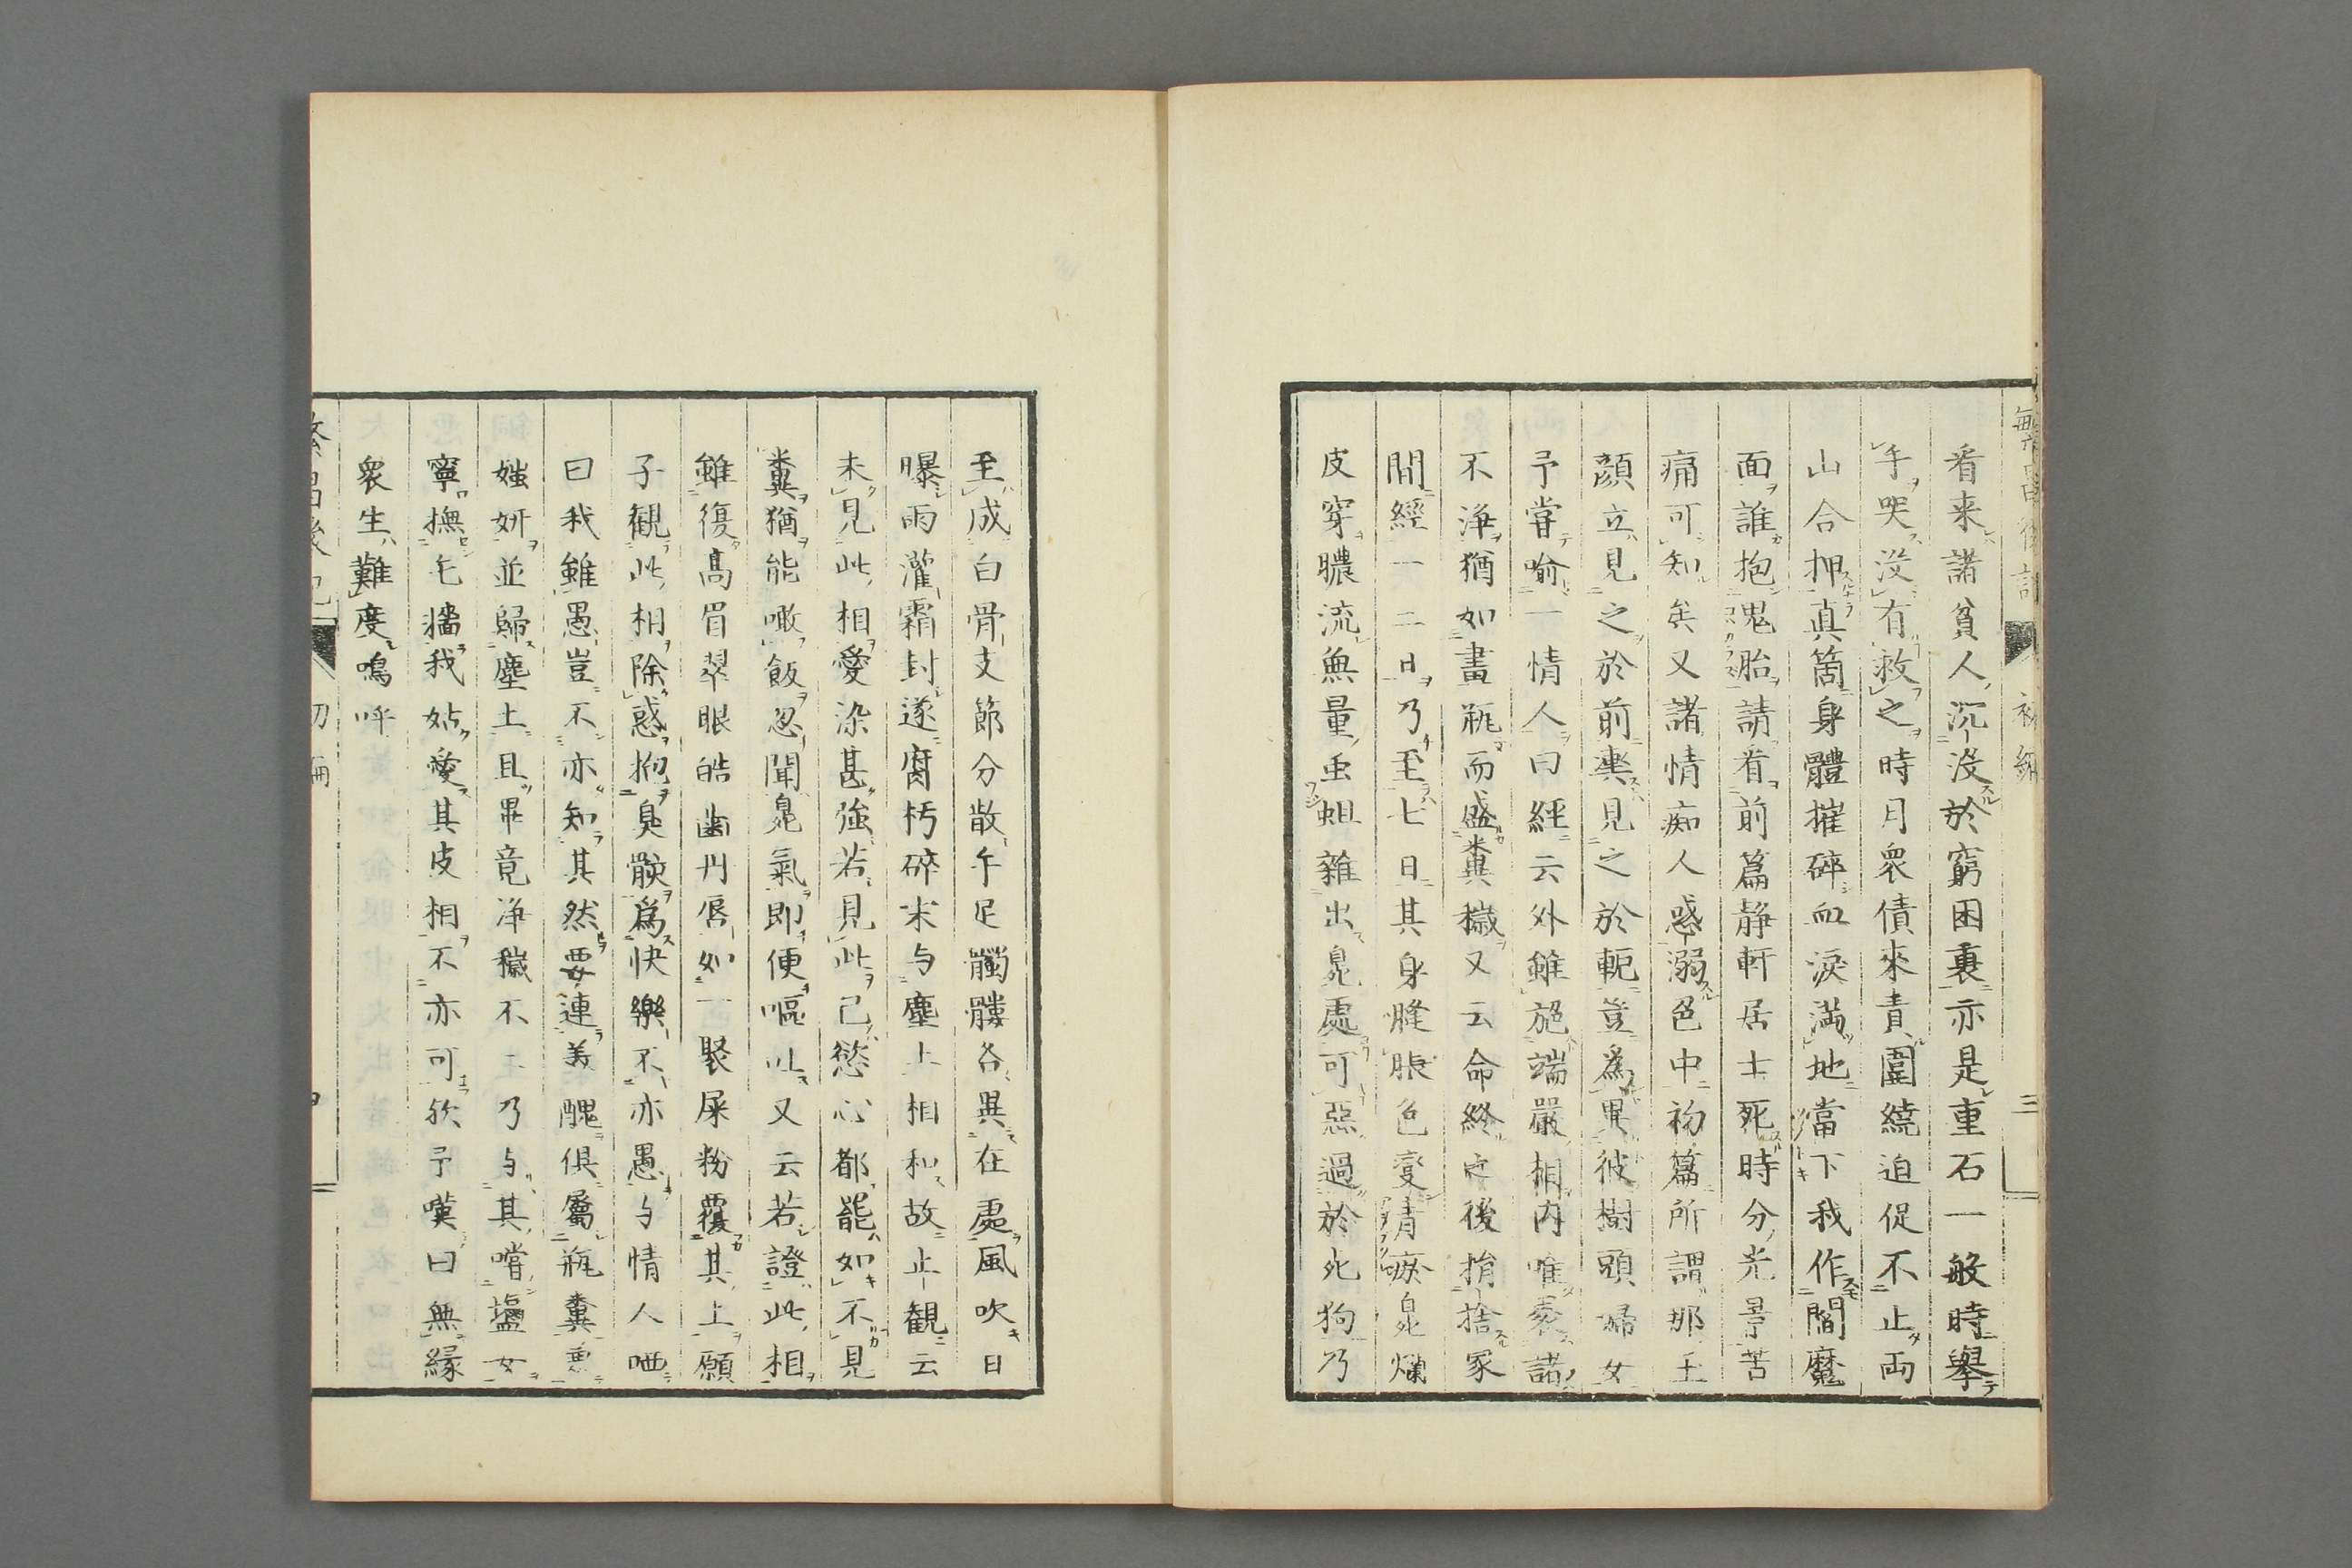 看来諸貧人沉没於窮困裏亦是重石一般時舉
手哭没有救之時月衆債來責圍繞迫促不止両
山合押真箇身體摧碎血淚満地當下我作閻魔
面誰抱鬼胎請看前篇静軒居士死時分光景苦
痛可知矣又諸情痴人惑溺色中初篇所謂那王
顔立見之於前輿見之於軛豈為異彼樹頭婦女
予嘗喩一情人曰經云外雖施端嚴相内唯裹諸
不淨猶如畫瓶而盛糞穢又云命終之後捐捨冢
間經一二日乃至七日其身膖脹色變青瘀臭爛
皮穿膿流無量虫蛆雜出臭處可惡過於死狗乃
至成白骨支節分散手足髑髏各異在處風吹日
曝雨灌霜封遂腐朽碎末与塵土相和故止観云
未見此相愛染甚強若見此已慾心都罷如不見
糞猶能噉飯忽聞臭氣即便嘔吐又云若證此相
雖復髙眉翠眼皓齒丹唇如一聚屎粉覆其上願
子観此相除惑抱臭骸為快樂不亦愚与情人哂
曰我雖愚豈不亦知其然要連美醜倶屬瓶糞悪
媸妍並歸塵土且畢竟淨穢不二乃与其嚐塩女
寧撫毛嬙我姑愛其皮相不亦可欤予嘆曰無緣
衆生難度嗚呼